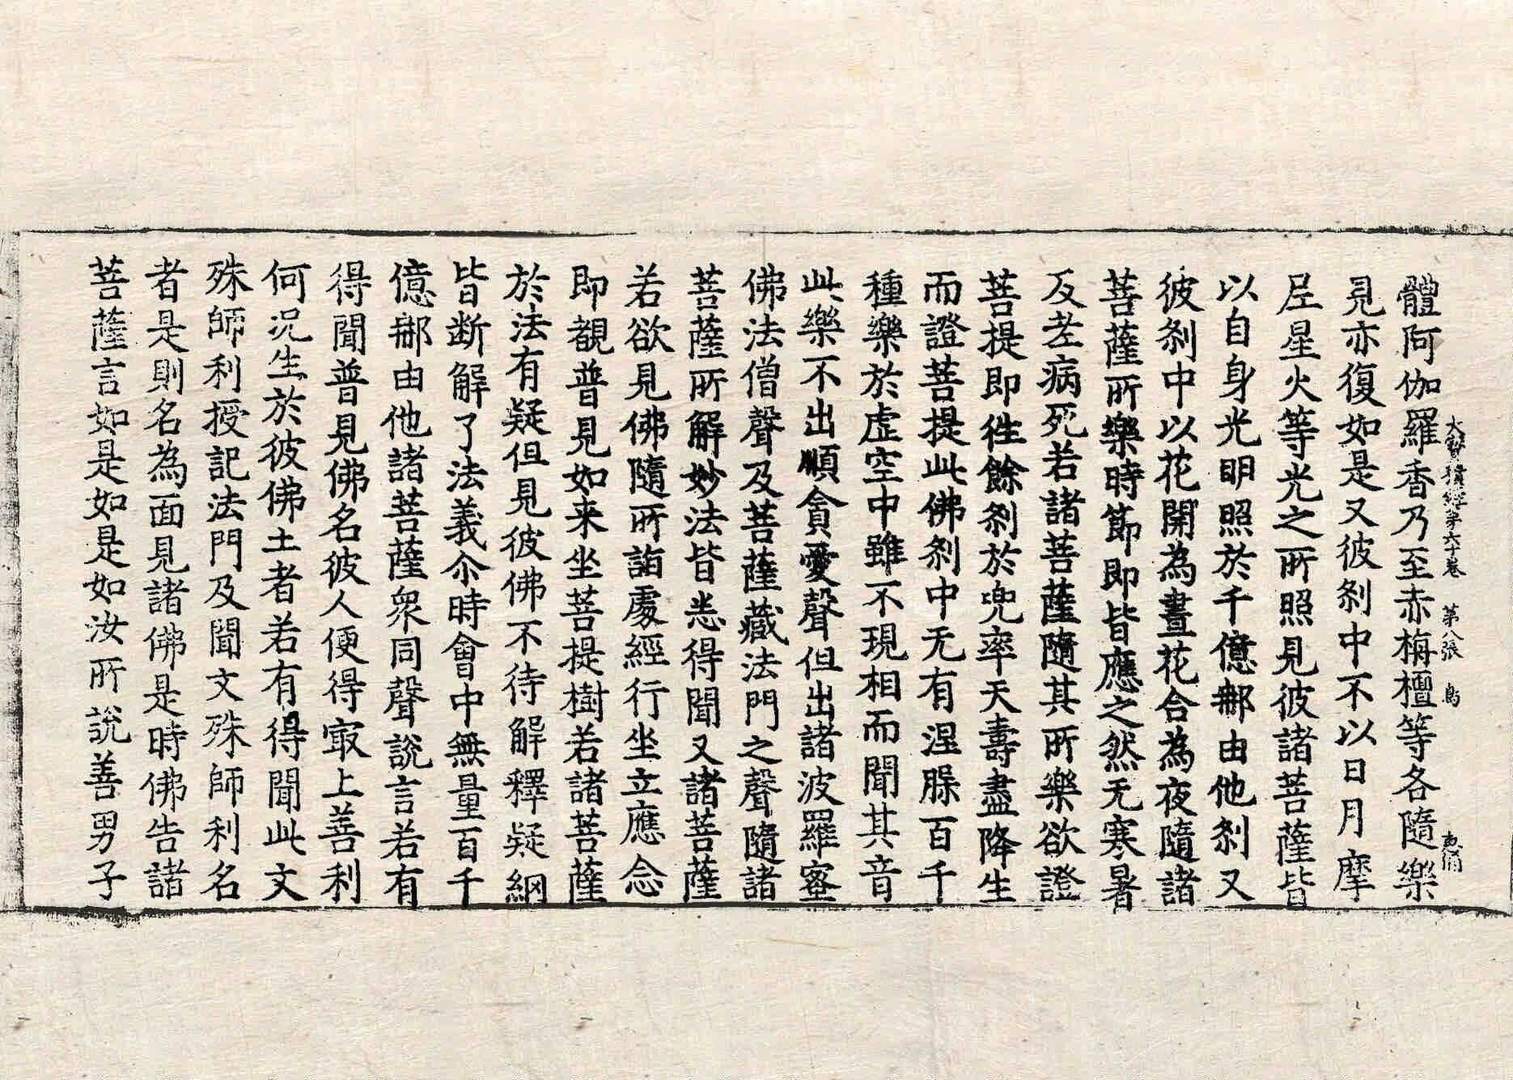 大寶積經第六十卷　第八張　鳥
體阿伽羅香乃至赤栴檀等各隨樂
見亦復如是又彼刹中不以日月摩
尼星火等光之所照見彼諸菩薩皆
以自身光明照於千億那由他刹又
彼刹中以花開為晝花合為夜隨諸
菩薩所樂時節即皆應之然无寒暑
及老病死若諸菩薩隨其所樂欲證
菩提即往餘刹於兜率天壽盡降生
而證菩提此佛刹中无有涅槃百千
種樂於虛空中雖不現相而聞其音
此樂不出順貪愛聲但出諸波羅蜜
佛法僧聲及菩薩藏法門之聲隨諸
菩薩所解妙法皆悉得聞又諸菩薩
若欲見佛隨所詣處經行坐立應念
即覩普見如来坐菩提樹若諸菩薩
於法有疑但見彼佛不待解釋疑網
皆断解了法義尒時會中無量百千
億那由他諸菩薩衆同聲說言若有
得聞普見佛名彼人便得㝡上善利
何況生於彼佛土者若有得聞此文
殊師利授記法門及聞文殊師利名
者是則名為面見諸佛是時佛告諸
菩薩言如是如是如汝所說善男子